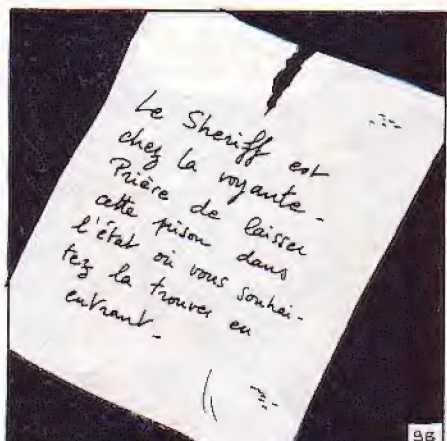 Le Sheriff est
chez la voyante -
Prière de laisser
cette prison dans
l'état où vous souhai-
tez la trouver en
entrant -
98